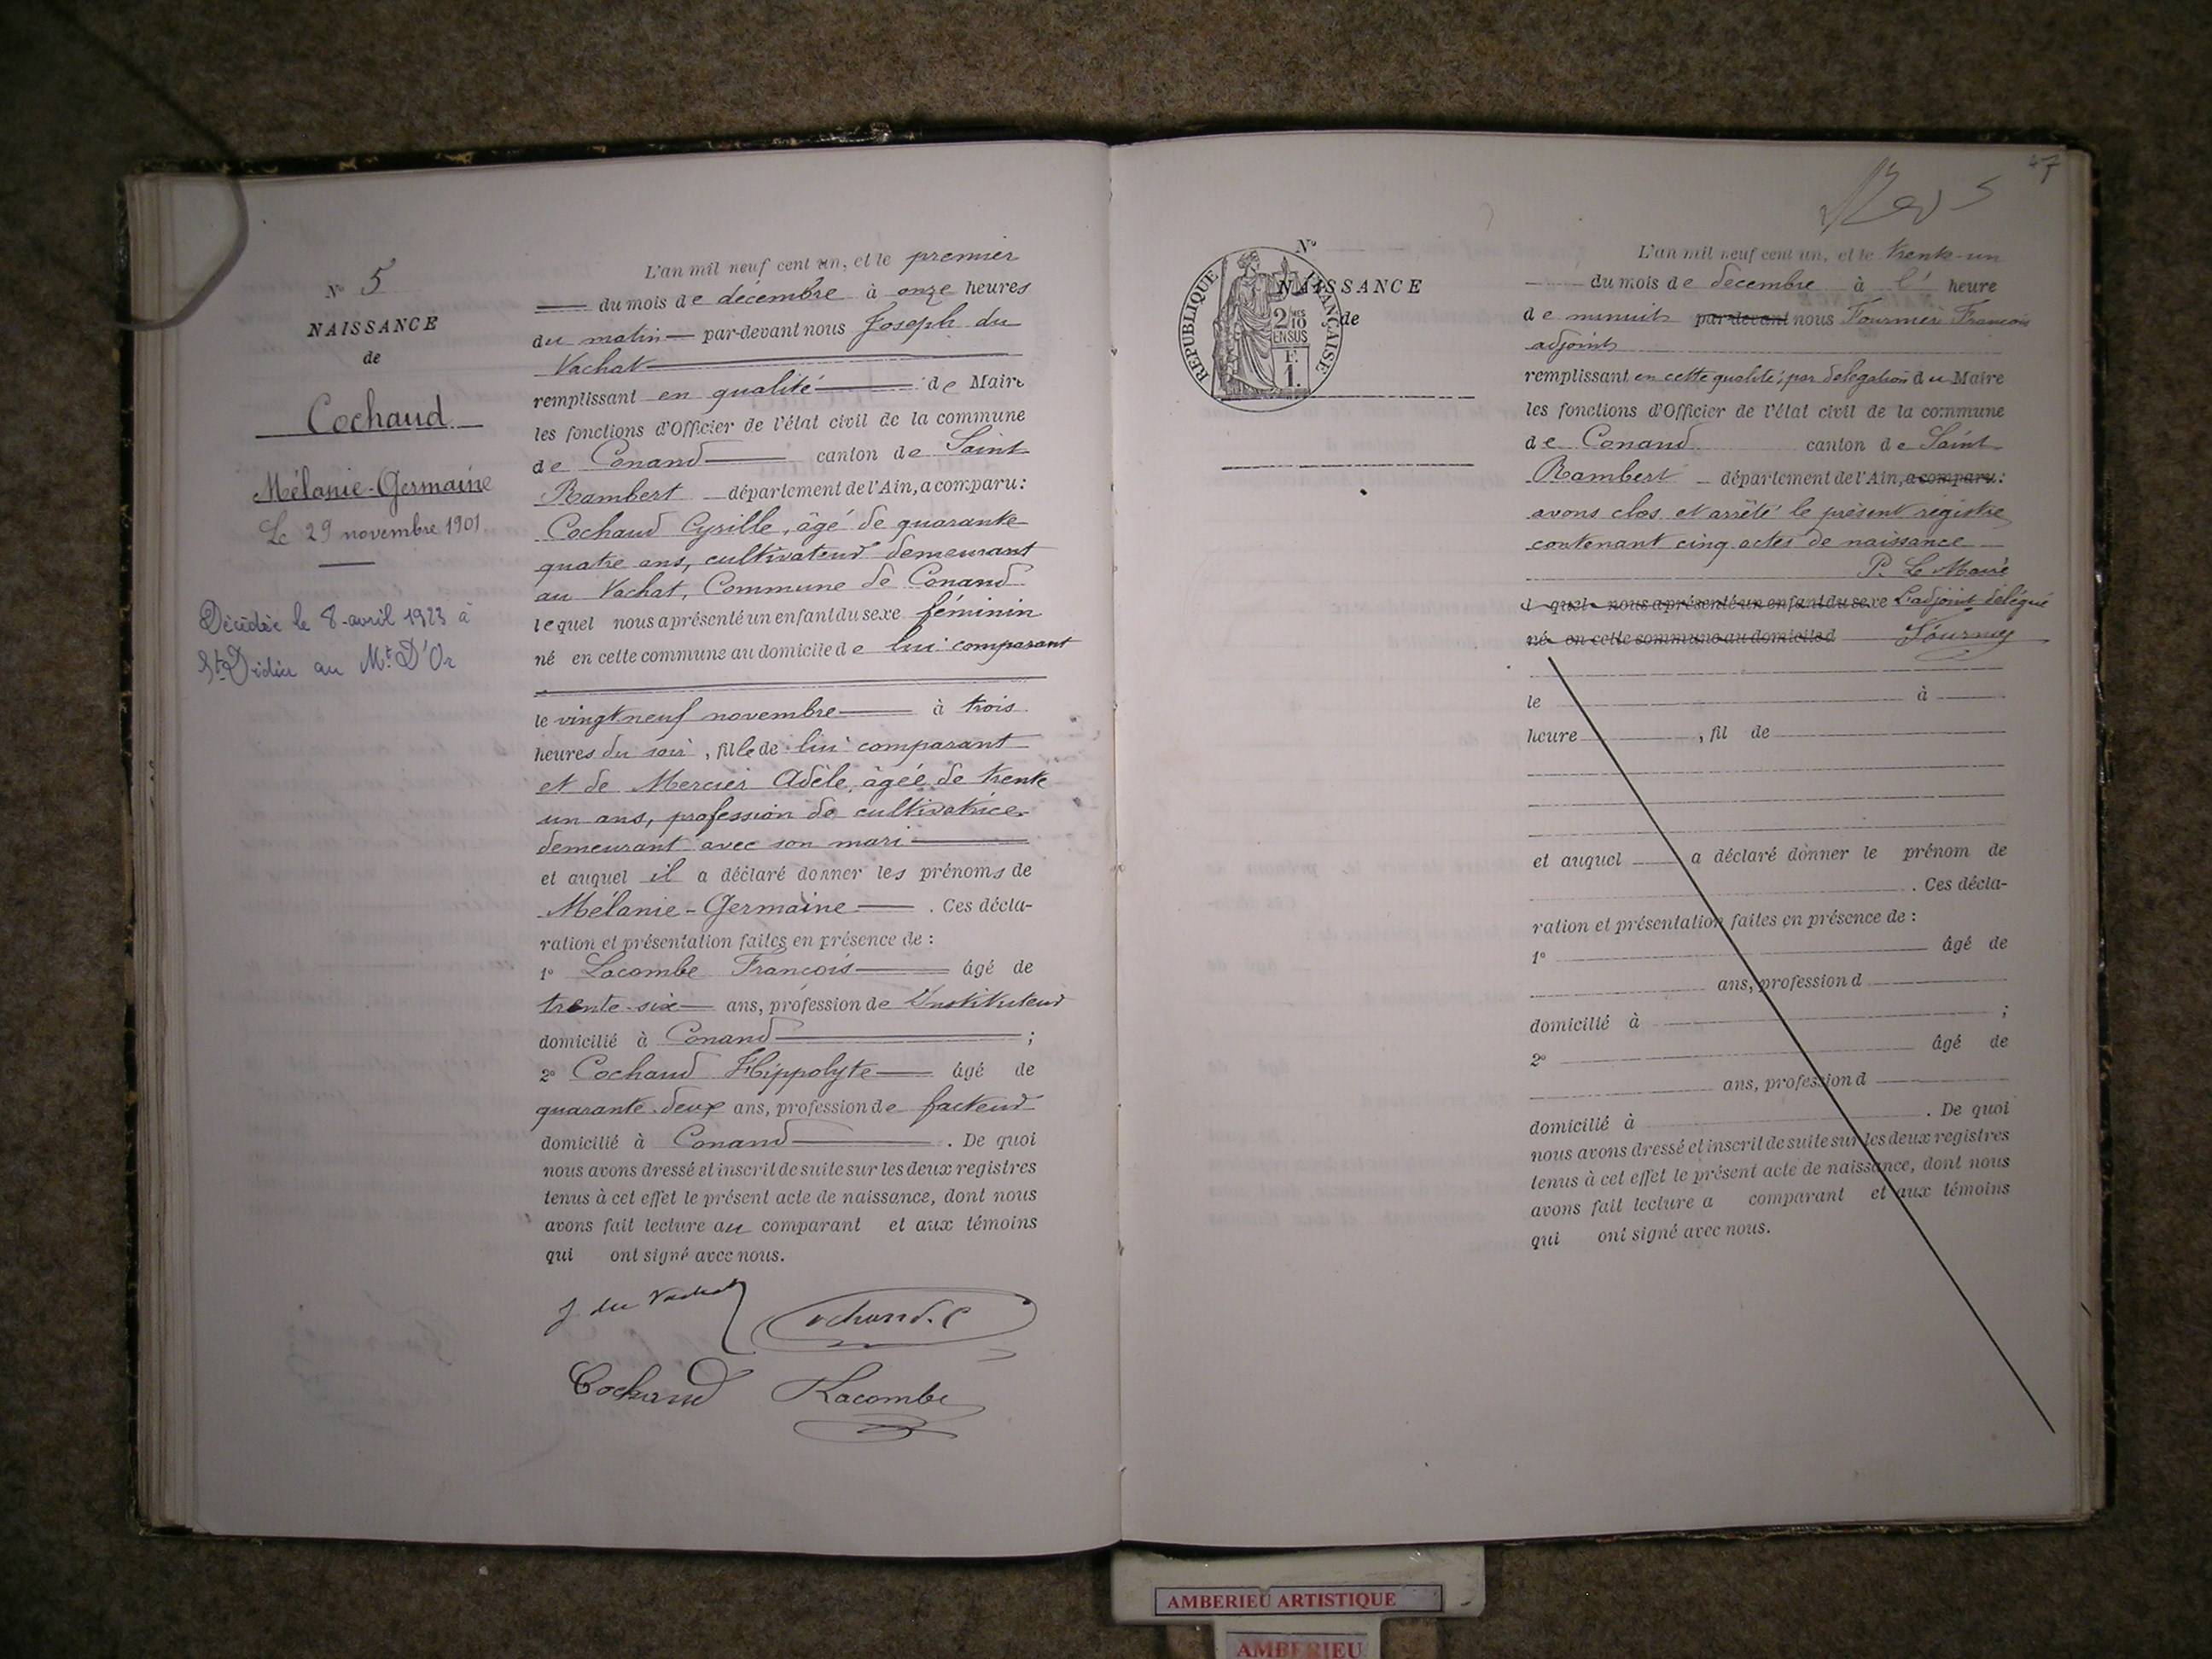 N° 5
NAISSANCE
de
Cochaud
Mélanie-Germaine
Le 29 novembre 1901
Décédée le 8 avril 1923 à
St Didier au Mt D'Or
L'an mil neuf cent un, et le premier
du mois de décembre à onze heures
du matin par-devant nous Joseph du
Vachat
remplissant en qualité de Maire
les fonctions d'Officier de l'état civil de la commune
de Conand canton de Saint
Rambert département de l'Ain, a comparu:
Cochaud Cyrille, âgé de quarante
quatre ans, cultivateur demeurant
au Vachat, Commune de Conand
lequel nous a présenté un enfant du sexe féminin
né en cette commune au domicile de lui comparant
le vingt neuf novembre à trois
heures du soir, fille de lui comparant
et de Mercier Adèle, âgée de trente
un ans, profession de cultivatrice
demeurant avec son mari
et auquel il a déclaré donner les prénoms de
Mélanie-Germaine. Ces décla-
ration et présentation faites en présence de :
1° Lacombe François âgé de
trente-six ans, profession de Instituteur
domicilié à Conand ;
2° Cochaud Hippolyte âgé de
quarante-deux ans, profession de facteur
domicilié à Conand. De quoi
nous avons dressé et inscrit de suite sur les deux registres
tenus à cet effet le présent acte de naissance, dont nous
avons fait lecture au comparant et aux témoins
qui ont signé avec nous.
J. du Vachat Cochaud. C
Cochaud Lacombe
47
N°
NAISSANCE
de
RÉPUBLIQUE FRANÇAISE
2/10MES
EN SUS
F.
1.
L'an mil neuf cent un, et le trente-un
du mois de décembre à l' heure
de minuit par-devant nous Fournier François
adjoint
remplissant en cette qualité, par délégation du Maire
les fonctions d'Officier de l'état civil de la commune
de Conand canton de Saint
Rambert département de l'Ain, a comparu:
avons clos et arrêté le présent registre
contenant cinq actes de naissance
P. Le Maire
l quel nous a présenté un enfant du sexe L'adjoint délégué
né en cette commune au domicile d Fournier
le à
heure , fil de
et auquel a déclaré donner le prénom de
. Ces décla-
ration et présentation faites en présence de :
1° âgé de
ans, profession d
domicilié à ;
2° âgé de
ans, profession d
domicilié à . De quoi
nous avons dressé et inscrit de suite sur les deux registres
tenus à cet effet le présent acte de naissance, dont nous
avons fait lecture a comparant et aux témoins
qui ont signé avec nous.
AMBERIEU ARTISTIQUE
AMBERIEU